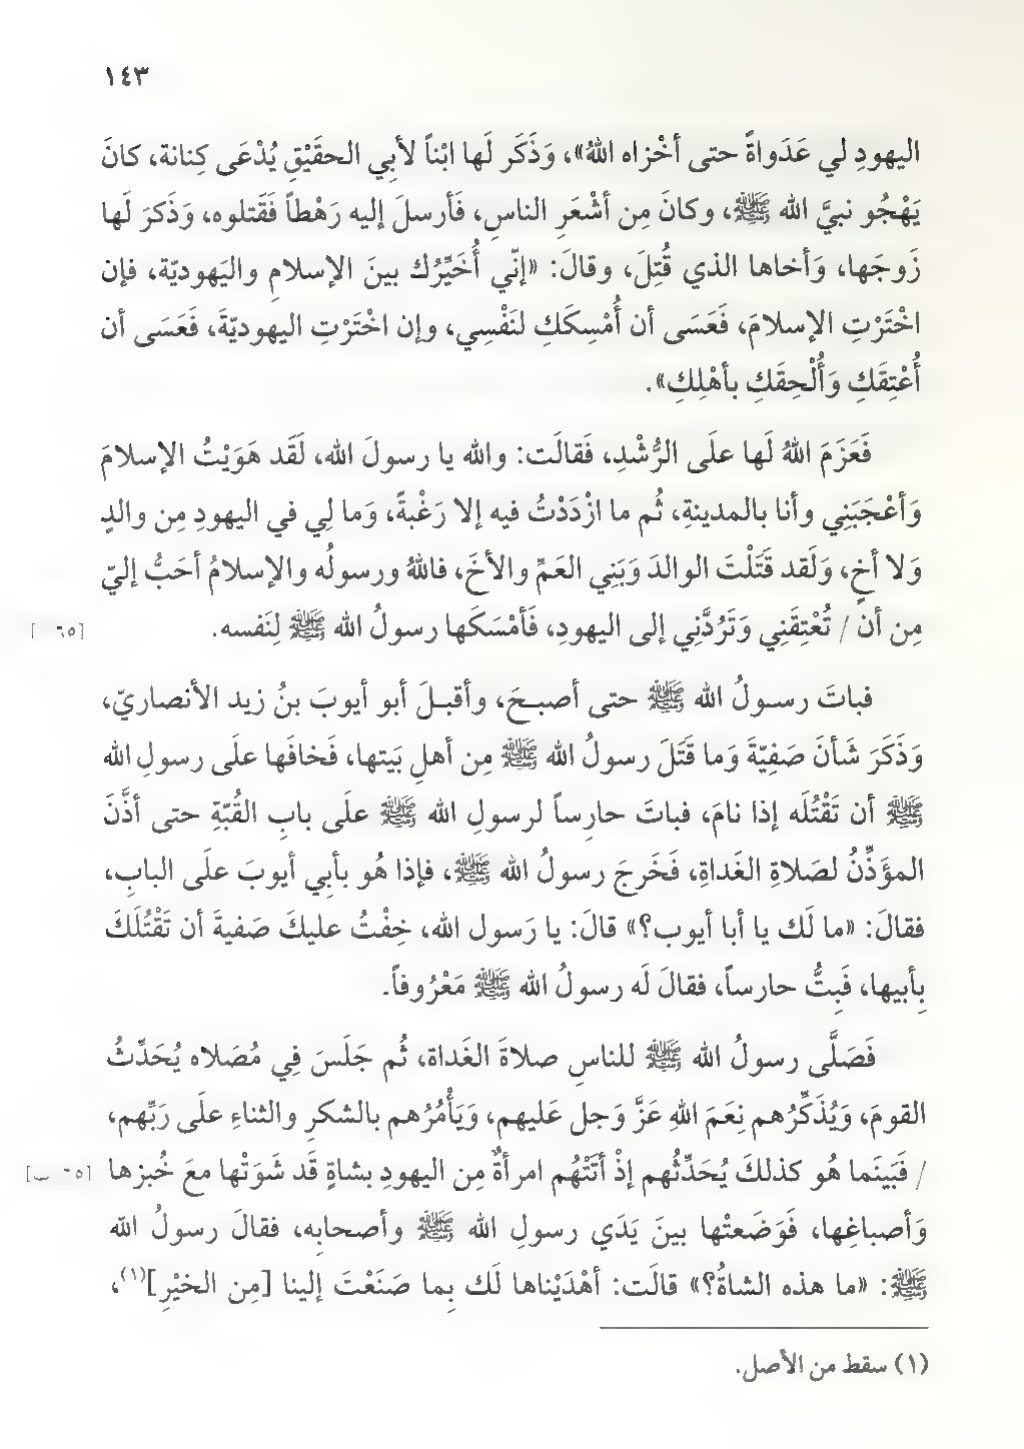 ١٤٣
اليهودِ لي عَدَواةً حتى أخْزاه اللهُ»، وَذَكَر لَها ابْناً لأبِي الحقَيْقِ يُدْعَى كِنانة، كانَ
يَهْجُو نبيَّ الله ﷺ، وكانَ مِن أشْعَرِ الناسِ، فَأرسلَ إليه رَهْطاً فَقَتلوه، وَذَكرَ لَها
زَوجَها، وَأخاها الذي قُتِلَ، وقالَ: «إنّي أُخَيِّرُك بينَ الإسلامِ واليَهوديّة، فإن
اخْتَرْتِ الإسلامَ، فَعَسَى أن أُمْسِكَكِ لنَفْسِي، وإن اخْتَرْتِ اليهوديّةَ، فَعَسَى أن
أُعْتِقَكِ وَأُلْحِقَكِ بأهْلِكِ».
فَعَزَمَ اللهُ لَها علَى الرُّشْدِ، فَقالَت: والله يا رسولَ الله، لَقَد هَوَيْتُ الإسلامَ
وَأعْجَبَنِي وأنا بالمدينةِ، ثُم ما ازْدَدْتُ فيه إلا رَغْبةً، وَما لِي في اليهودِ مِن والدٍ
وَلا أخٍ، وَلَقد قَتَلْتَ الوالدَ وَبَنِي العَمِّ والأخَ، فاللهُ ورسولُه والإسلامُ أحَبُّ إليّ
مِن أن / تُعْتِقَنِي وَتَرُدَّنِي إلى اليهودِ، فَأمْسَكَها رسولُ الله ﷺ لِنَفسه.
[٦٥ ]
فباتَ رسـولُ الله ﷺ حتى أصبـحَ، وأقبـلَ أبو أيوبَ بنُ زيد الأنصاريّ،
وَذَكَرَ شَأنَ صَفِيّةَ وَما قَتَلَ رسولُ الله ﷺ مِن أهلِ بَيتها، فَخافَها علَى رسولِ الله
ﷺ أن تَقْتُلَه إذا نامَ، فباتَ حارِساً لرسولِ الله ﷺ علَى بابِ القُبّةِ حتى أذَّنَ
المؤَذِّنُ لصَلاةِ الغَداةِ، فَخَرجَ رسولُ الله ﷺ، فإذا هُو بأبِي أيوبَ علَى البابِ،
فقالَ: «ما لَك يا أبا أيوب؟» قالَ: يا رَسول الله، خِفْتُ عليكَ صَفيةَ أن تَقْتُلَكَ
بِأبيها، فَبِتُّ حارساً، فقالَ لَه رسولُ الله ﷺ مَعْرُوفاً.
فَصَلَّى رسولُ الله ﷺ للناسِ صلاةَ الغَداة، ثُم جَلَسَ فِي مُصَلاه يُحَدِّثُ
القومَ، وَيُذَكِّرُهم نِعَمَ اللهِ عَزَّ وَجل عَليهم، وَيَأْمُرُهم بالشكرِ والثناءِ علَى رَبِّهم،
/ فَبَينَما هُو كذلكَ يُحَدِّثُهم إذْ أتَتْهُم امرأةٌ مِن اليهودِ بشاةٍ قَد شَوَتْها معَ خُبزها
[٦٥ ب]
وَأصباغِها، فَوَضَعتْها بينَ يَدَي رسولِ الله ﷺ وأصحابِه، فقالَ رسولُ الله
ﷺ: «ما هذه الشاةُ؟» قالَت: أهْدَيْناها لَك بِما صَنَعْتَ إلينا [مِن الخيْرِ](١)،
(١) سقط من الأصل.